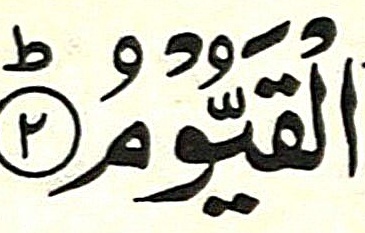 الْقَيُّوْمُؕ ﴿٢﴾